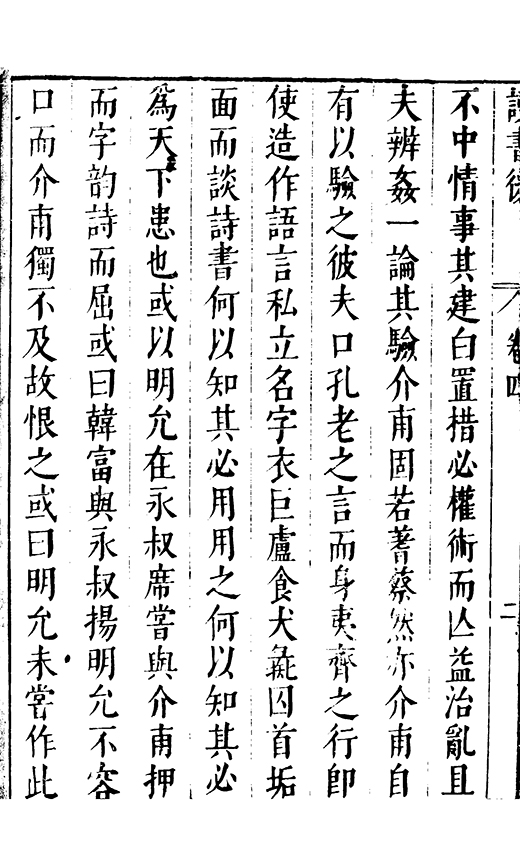 讀書後 卷四 二
不中情事其建白置措必權術而亾益治亂且
夫辨姦一論其驗介甫固若蓍蔡然亦介甫自
有以驗之彼夫口孔老之言而身夷齊之行卽
使造作語言私立名字衣巨盧食犬彘囚首垢
面而談詩書何以知其必用用之何以知其必
爲天下患也或以明允在永叔席嘗與介甫押
而字韵詩而屈或曰韓富與永叔揚明允不容
口而介甫獨不及故恨之或曰明允未嘗作此